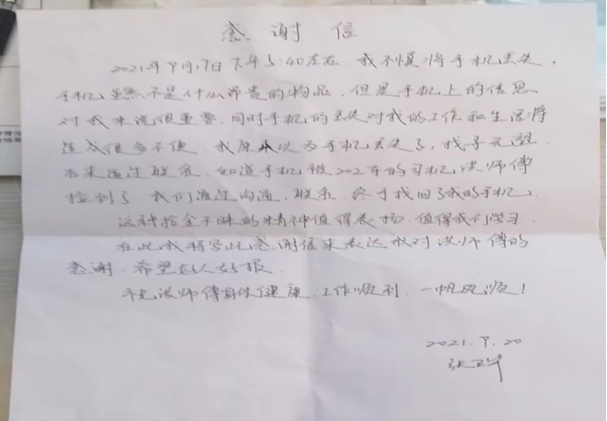 感谢信
2021年9月17日下午5:40左右,我不慎将手机丢失,
手机虽然不是什么昂贵的物品,但是手机上的信息
对我来说很重要,同时手机的丢失对我的工作和生活将
造成很多不便,我原以为手机丢失了,找寻无望,
后来通过联系,知道手机被202车的司机洪师傅
捡到了,我们通过沟通、联系,终于找回了我的手机,
这种拾金不昧的精神值得表扬,值得我们学习,
在此我特写此感谢信来表达我对洪师傅的
感谢,希望好人好报,
祝洪师傅身体健康,工作顺利,一帆风顺!
2021.9.20
张卫